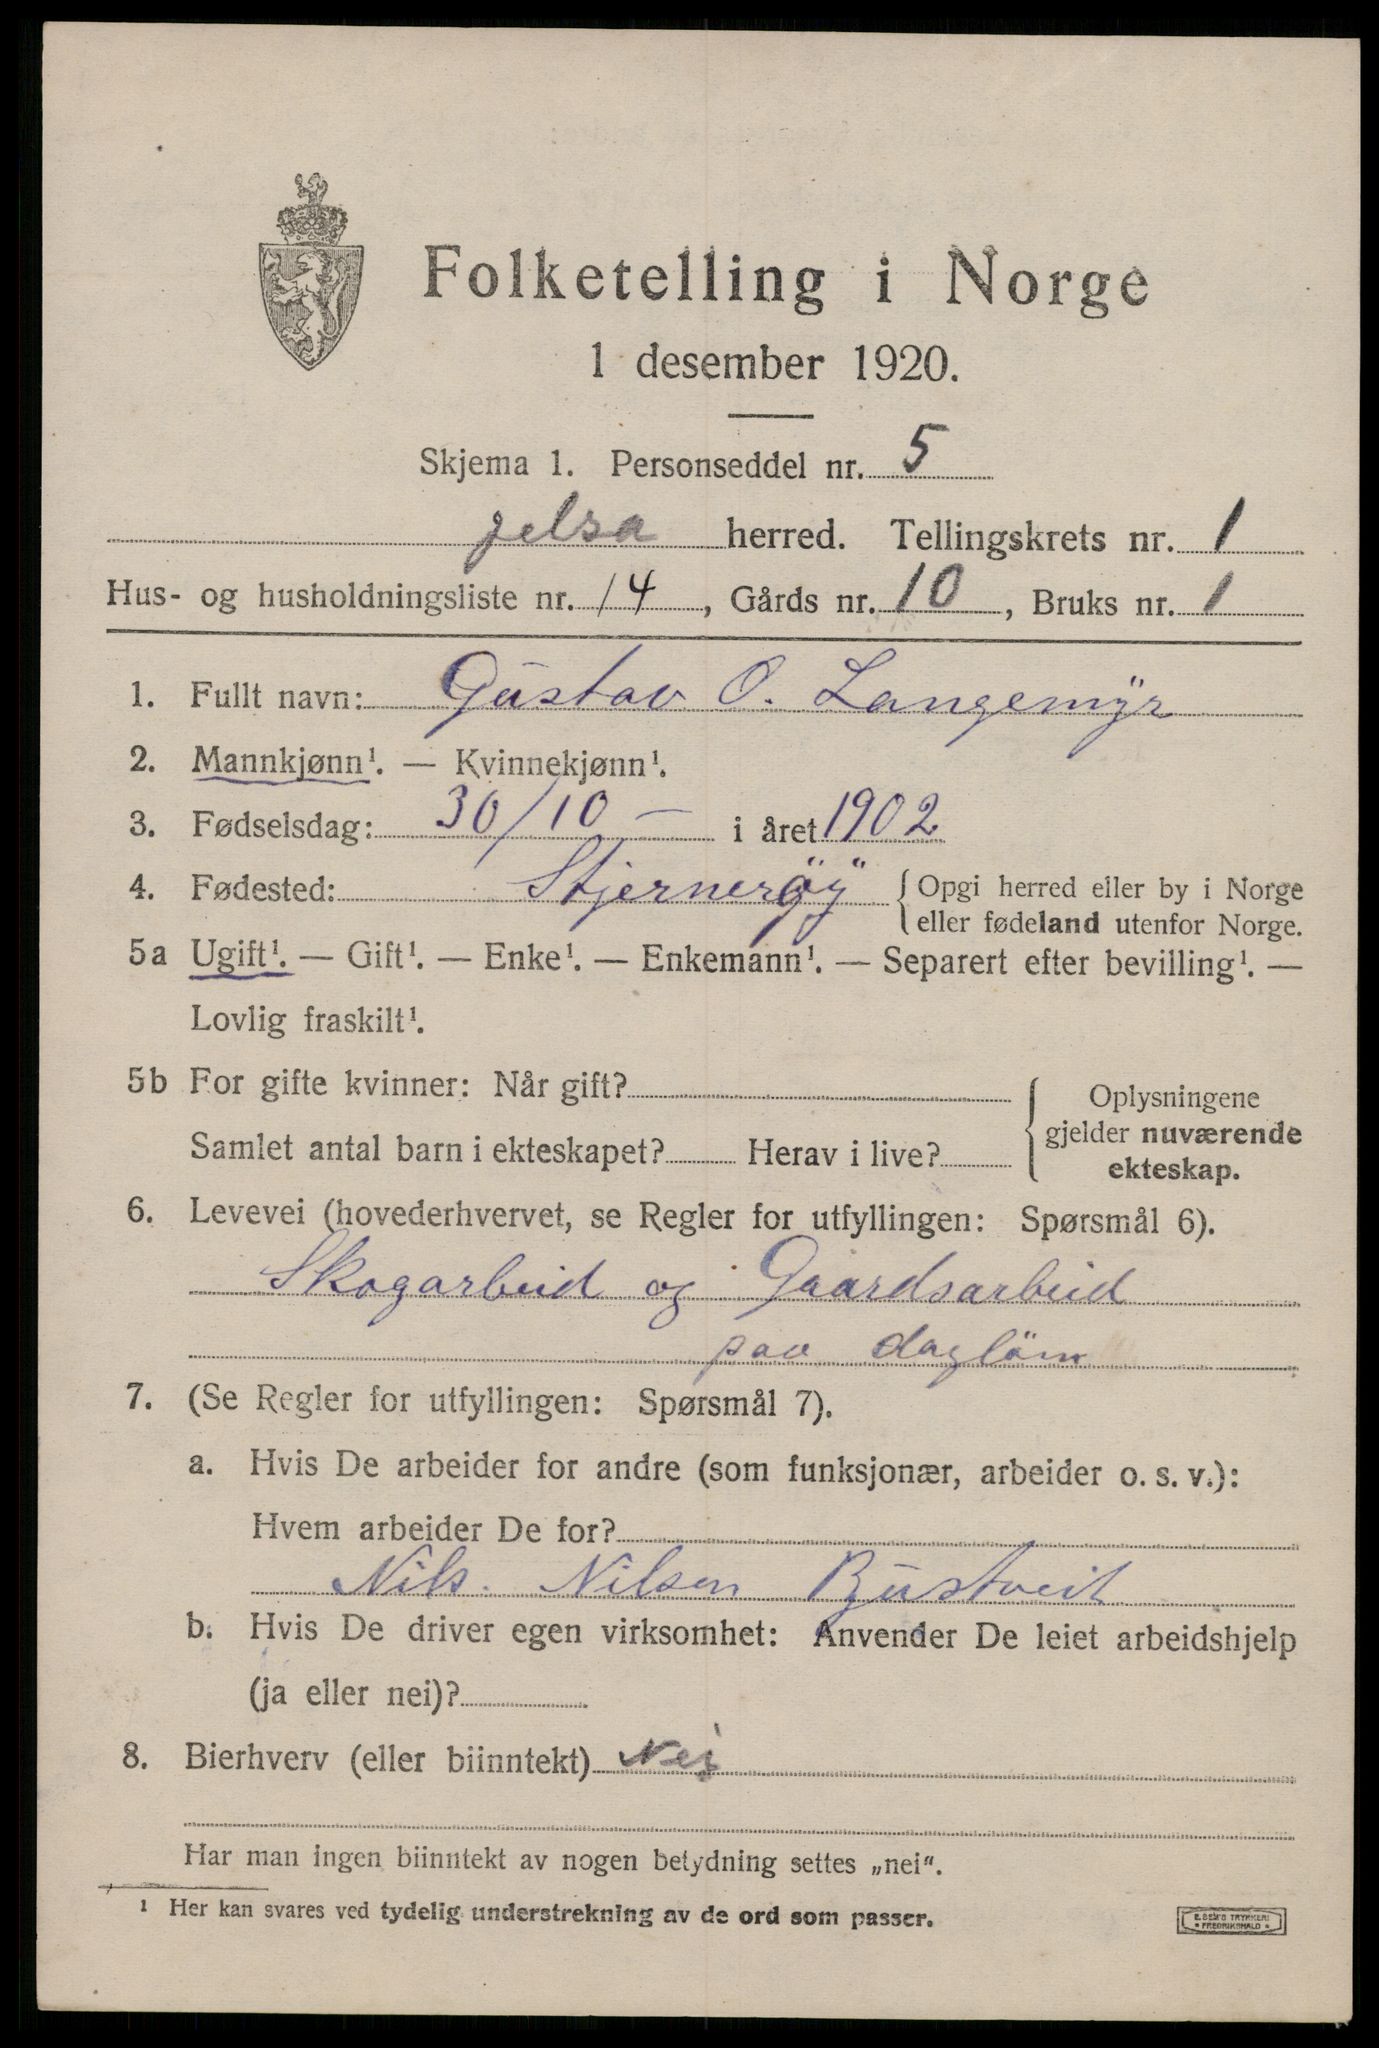 Folketelling i Norge
1 desember 1920.
Skjema 1. Personseddel nr. 5
Jelsa herred. Tellingskrets nr. 1
Hus- og husholdningsliste nr. 14, Gårds nr. 10, Bruks nr. 1
1. Fullt navn: Gustav O. Langemyr
2. Mannkjønn¹. — Kvinnekjønn¹.
3. Fødselsdag: 30/10 — i året 1902
4. Fødested: Stjernerøy { Opgi herred eller by i Norge
eller fødeland utenfor Norge.
5a Ugift¹. — Gift¹. — Enke¹. — Enkemann¹. — Separert efter bevilling¹. —
Lovlig fraskilt¹.
5b For gifte kvinner: Når gift?
Samlet antal barn i ekteskapet? Herav i live?
Oplysningene
gjelder nuværende
ekteskap.
6. Levevei (hovederhvervet, se Regler for utfyllingen: Spørsmål 6).
Skogarbeid og Gaardsarbeid
paa daglön
7. (Se Regler for utfyllingen: Spørsmål 7).
a. Hvis De arbeider for andre (som funksjonær, arbeider o. s. v.):
Hvem arbeider De for?
Nils. Nilsen Bjustveit
b. Hvis De driver egen virksomhet: Anvender De leiet arbeidshjelp
(ja eller nei)?
8. Bierhverv (eller biinntekt) Nei
Har man ingen biinntekt av nogen betydning settes „nei".
¹ Her kan svares ved tydelig understrekning av de ord som passer.
E. SEM'S TRYKKERI
FREDRIKSHALD